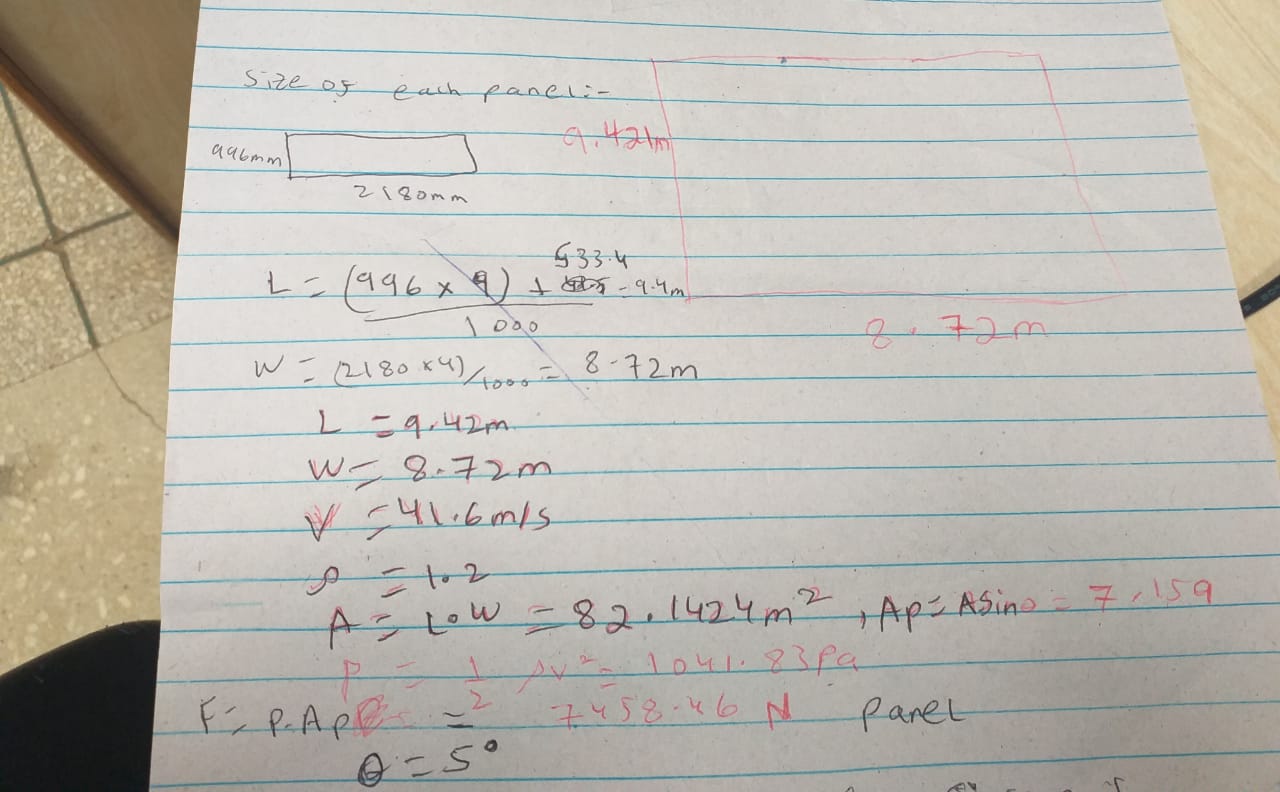 Size of each panel:-
9.421m
996mm
2180mm
533.4
L = (996 x 9) + = 9.4m
1000
8.72m
W = (2180 x4)/1000 = 8.72m
L = 9.42m
W = 8.72m
V = 41.6m/s
ρ = 1.2
A = L•W = 82.1424m², Ap = Asinθ = 7.159
P = 1/2 ρv² = 1041.83Pa
F = P.Ap = 7458.46 N Panel
θ = 5°